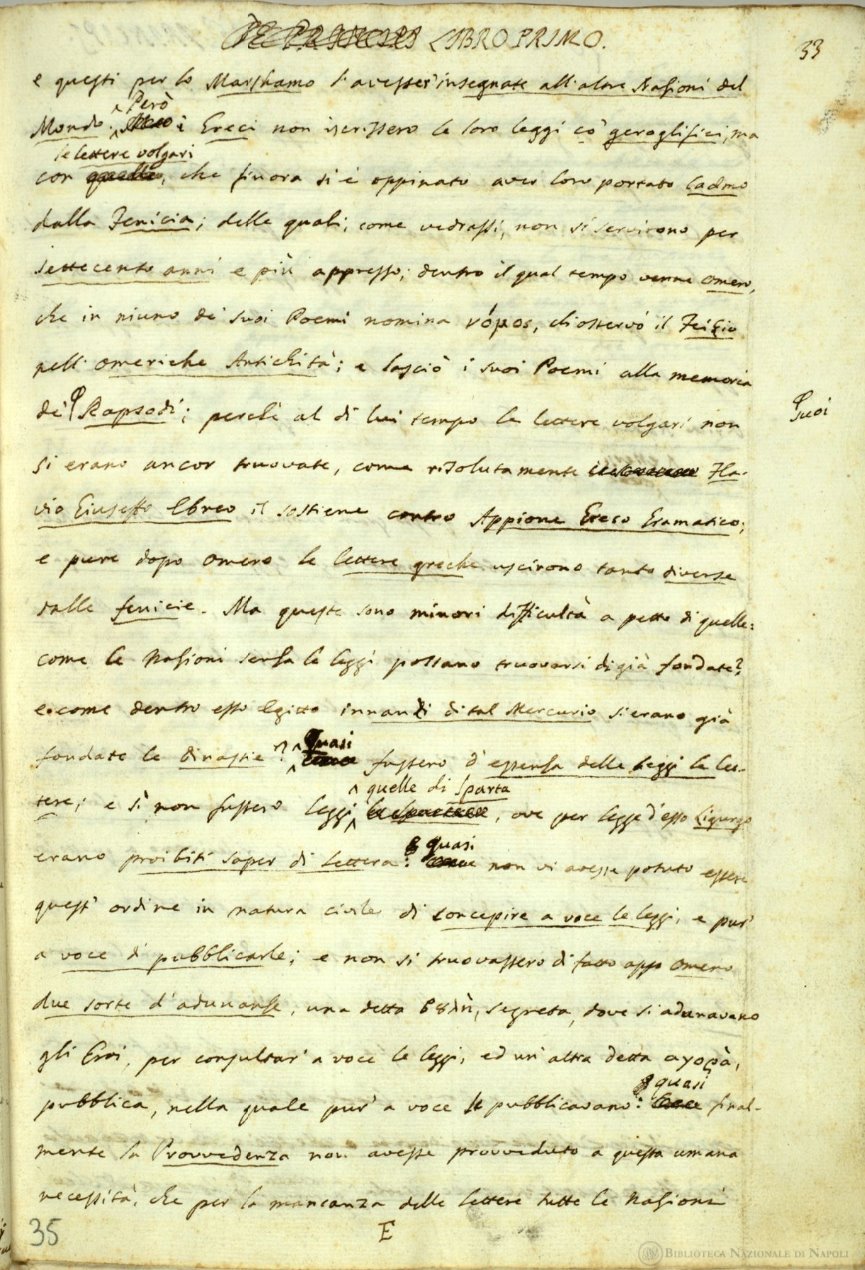 LIBRO PRIMO.
33
e questi per lo Marshamo l'avesser' insegnate all'altre Nazioni del
Però
Mondo. i Greci non iscrissero le loro leggi co' geroglifici, ma
le lettere volgari
con, che finora si è oppinato aver loro portato Cadmo
dalla Fenicia; delle quali, come vedrassi, non si servirono per
settecento anni e più appresso; dentro il qual tempo venne Omero,
che in niuno de' suoi Poemi nomina νόμος, ch'osservò il Feizio
nell'Omeriche Antichità; e lasciò i suoi Poemi alla memoria
de' Rapsodi; perchè al di lui tempo le lettere volgari non
suoi
si erano ancor truovate, come risolutamente Fla-
vio Giuseffo Ebreo il sostiene contro Appione Greco Gramatico;
e pure dopo Omero le lettere greche uscirono tanto diverse
dalle fenicie. Ma queste sono minori difficultà a petto di quelle:
come le Nazioni senza le leggi possano truovarsi di già fondate?
e come dentro esso Egitto innanzi di tal Mercurio si erano già
Quasi
fondate le Dinastie? fussero d'essenza delle leggi le let-
quelle di Sparta
tere; e sì non fussero leggi, ove per legge d'esso Ligurgo
quasi
erano proibiti saper di lettera: non vi avesse potuto essere
quest' ordine in natura civile di concepire a voce le leggi, e pur'
a voce di pubblicarle; e non si truovassero di fatto appo Omero
due sorte d'adunanze, una detta βȣλὴ, segreta, dove si adunavano
gli Eroi, per consultar' a voce le leggi, ed un' altra detta ἀγορὰ,
quasi
pubblica, nella quale pur' a voce le pubblicavano: final-
mente la Provvedenza non avesse provveduto a questa umana
necessità, che per la mancanza delle lettere tutte le Nazioni
35
E
BIBLIOTECA NAZIONALE DI NAPOLI